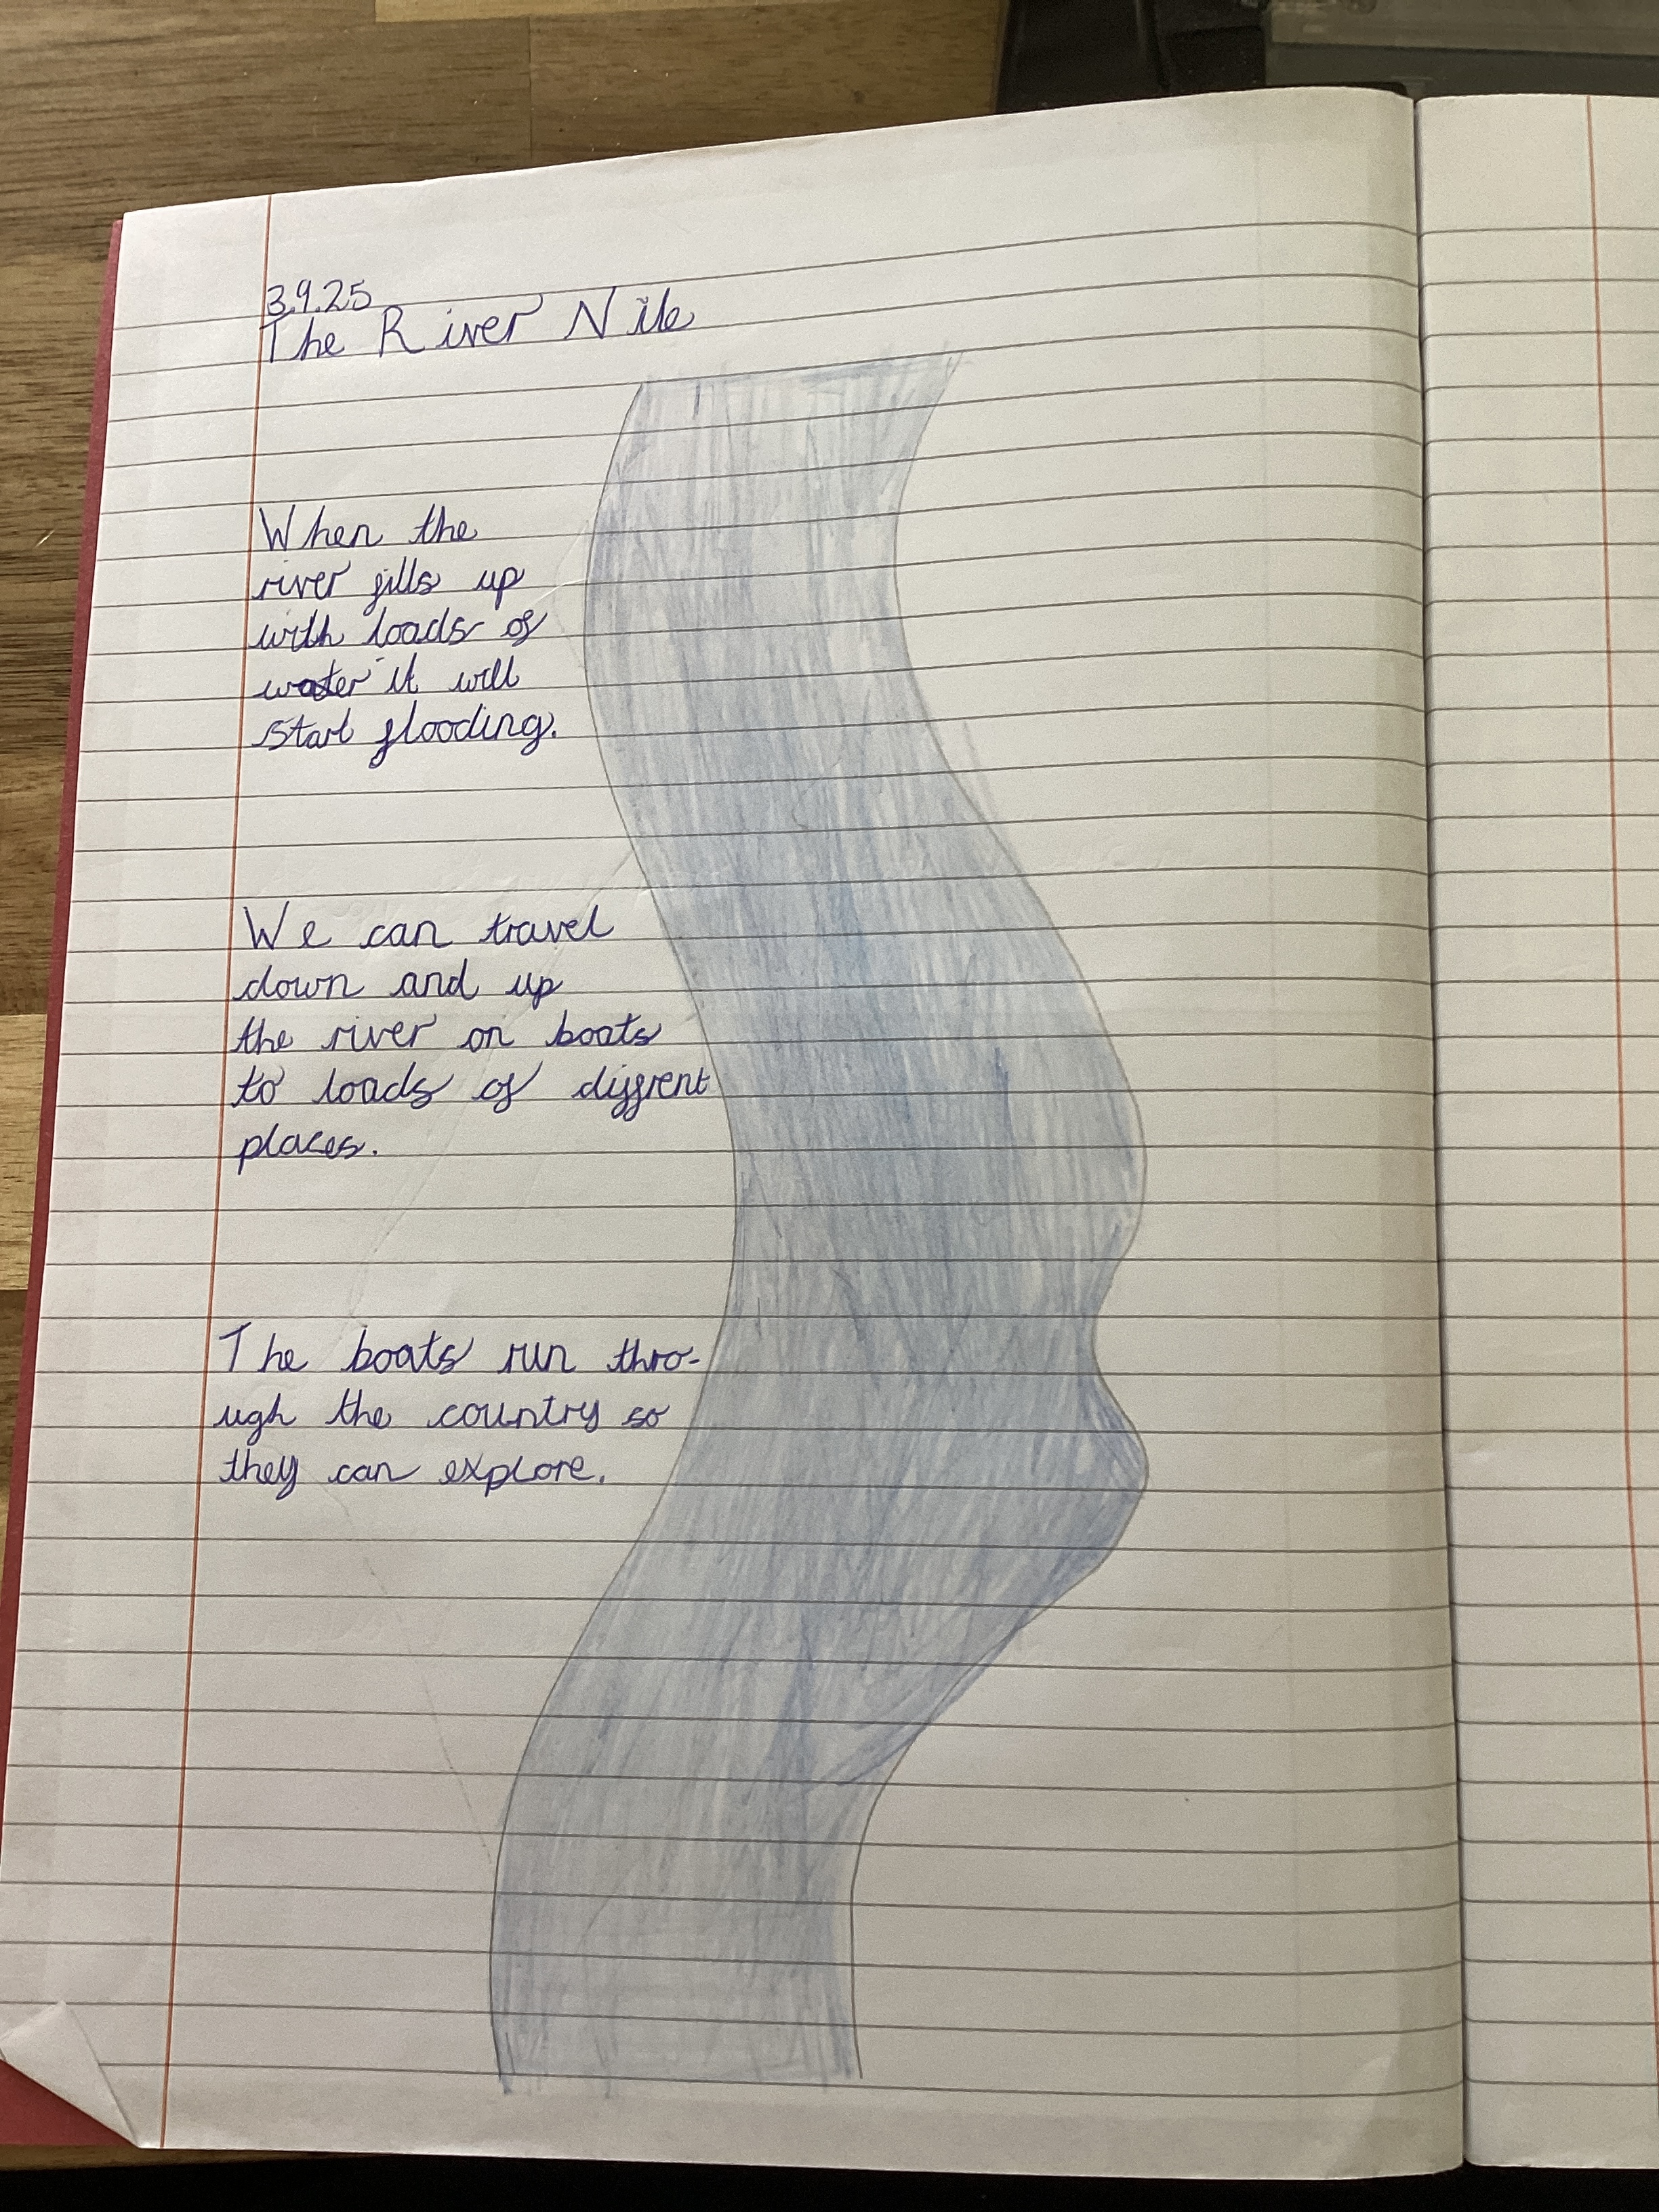 3.9.25
The River Nile
When the
river fills up
with loads of
water it will
start flooding.
We can travel
down and up
the river on boats
to loads of diffrent
places.
The boats run thro-
ugh the country so
they can explore.